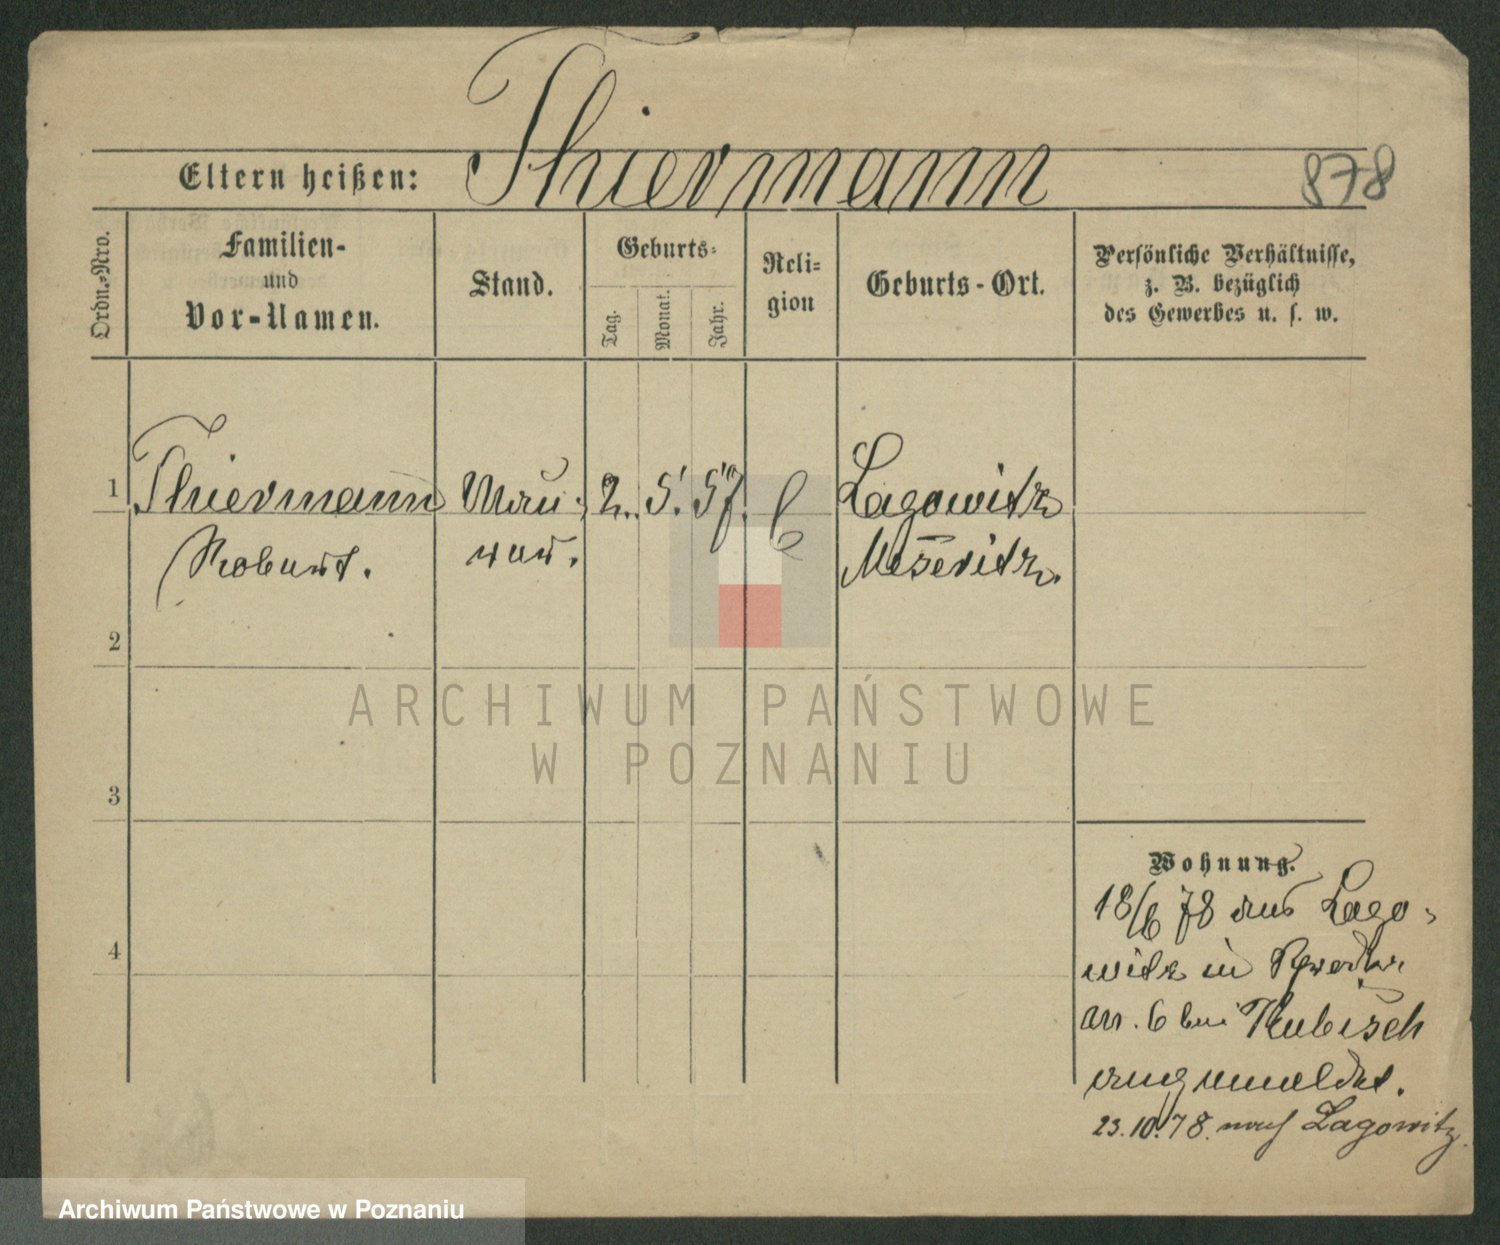 Thiermann
Eltern heißen:
878
Ordn.-Nro.
Familien-
und
Vor-Namen.
Stand.
Geburts-
Tag.
Monat.
Jahr.
Reli-
gion
Geburts-Ort.
Persönliche Verhältnisse,
z. B. bezüglich
des Gewerbes u. s. w.
1
Thiermann
Robert.
Mau-
rer.
2.
5.
57.
Lagowitz
Meseritz.
2
3
4
Wohnung.
18/6 78 aus Lago-
witz in
6 bei Kubisch
angemeldet.
23.10.78. nach Lagowitz
ARCHIWUM PAŃSTWOWE
W POZNANIU
Archiwum Państwowe w Poznaniu